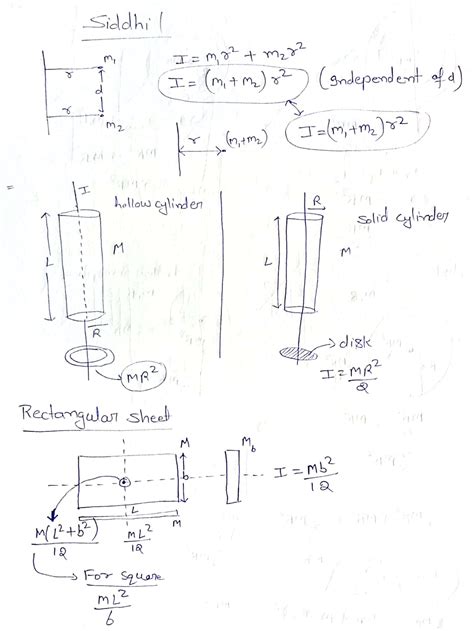 Siddhi 1
m₁
r
d
r
m₂
I = m₁r² + m₂r²
I = (m₁ + m₂) r² (Independent of d)
r (m₁+m₂)
I = (m₁+m₂) r²
=
I
hollow cylinder
L
M
R
MR²
R
solid cylinder
L
M
disk
I = MR²/2
Rectangular sheet
M
b
L
M
M(L²+b²)/12
ML²/12
Mb
I = Mb²/12
For square
ML²/6